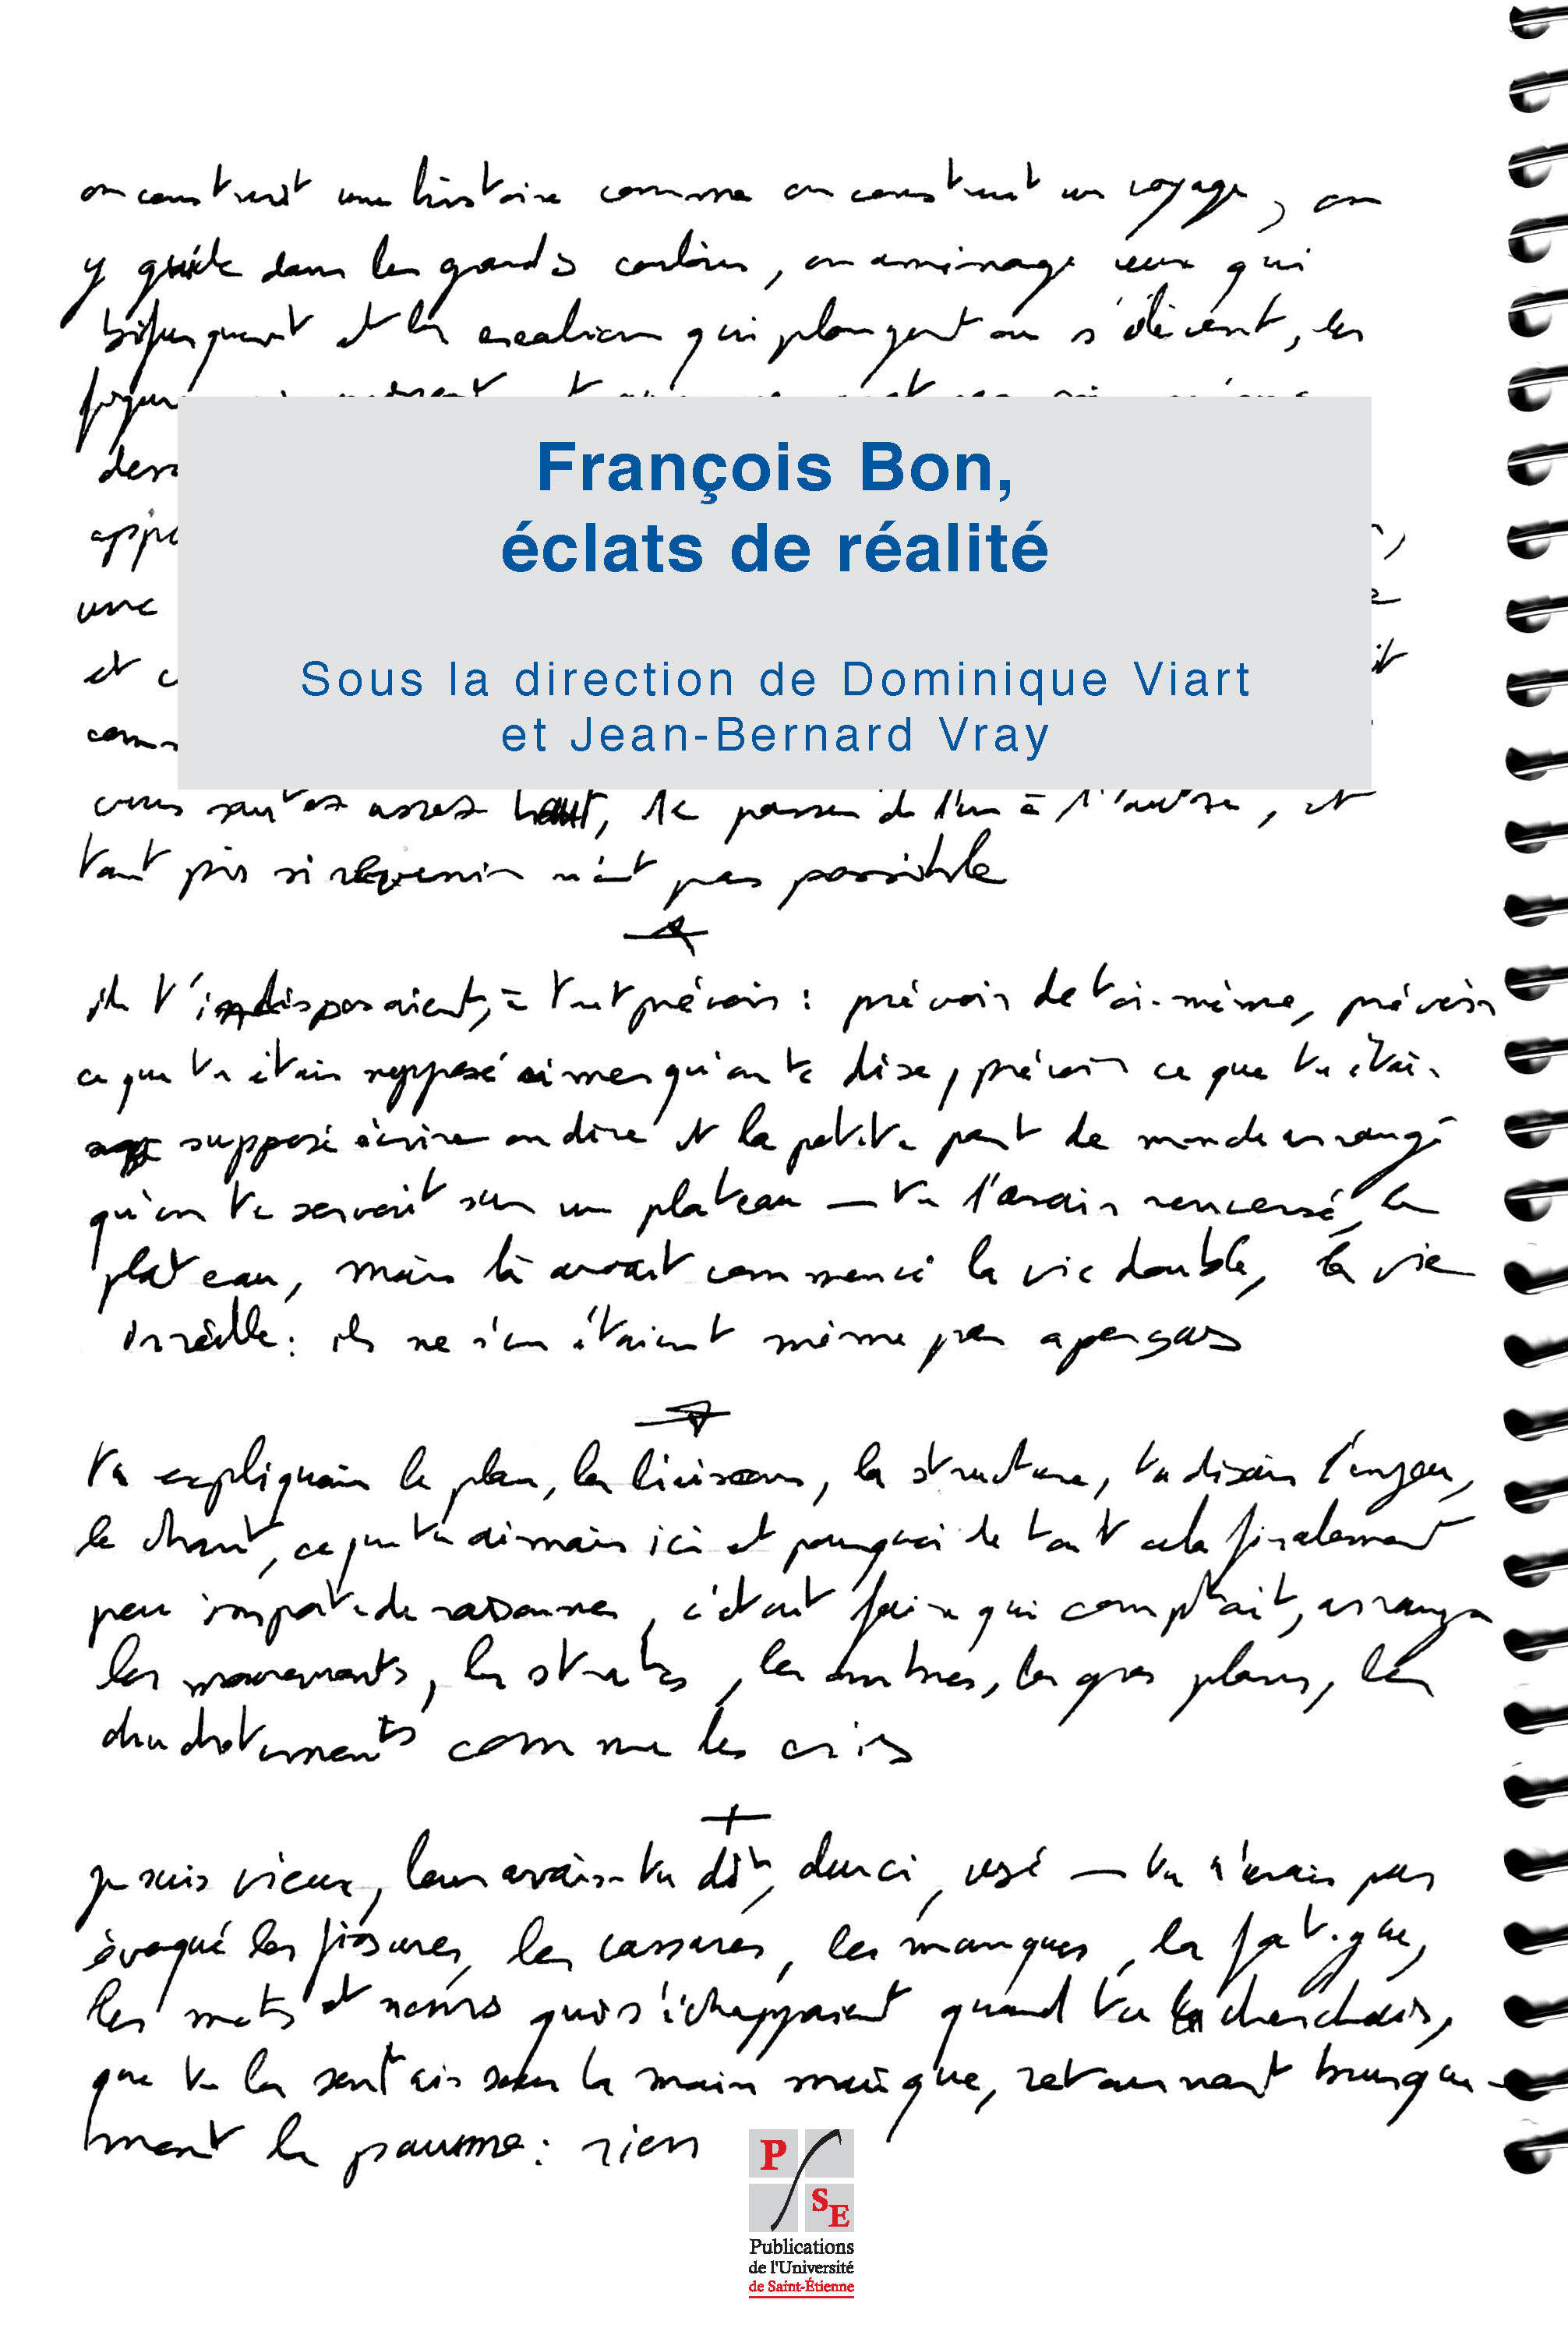 on construit une histoire comme on construit un voyage, on
y guide dans les grands couloirs, on aménage ceux qui
bifurquent et les escaliers qui plongent ou s'élèvent, les
figur
derr
appr
une
et c
comm
François Bon,
éclats de réalité
Sous la direction de Dominique Viart
et Jean-Bernard Vray
vous sautez assez haut, de passer de l'un à l'autre, et
tant pis si revenir n'est pas possible
ils t'indisposaient, à tout prévoir : prévoir de toi-même, prévoir
ce que tu étais supposé aimer qu'on te dise, prévoir ce que tu étais
supposé écrire ou dire et la petite part de monde arrangé
qu'on te servait sur un plateau — tu l'avais renversé, le
plateau, mais là avait commencé la vie double, la vie
irréelle : ils ne s'en étaient même pas aperçus
tu expliquais le plan, les liaisons, la structure, tu disais l'enjeu,
le chant, ce que tu aimais ici et pourquoi de tout cela finalement
peu importe de raisonner, c'était faire qui comptait, arranger
les mouvements, les strates, les ombres, les gros plans, les
chuchotements comme les cris
je suis vieux, leur avais-tu dit, durci, usé — tu n'avais pas
évoqué les fissures, les cassures, les manques, la fatigue,
les mots et noms qui s'échappaient quand tu les cherchais,
que tu les sentais sous la main presque, retournant brusque-
ment la paume : rien
P
SE
Publications
de l'Université
de Saint-Étienne